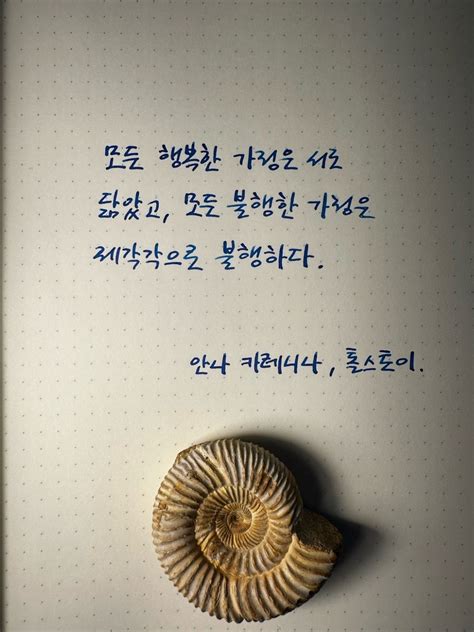 모든 행복한 가정은 서로
닮았고, 모든 불행한 가정은
제각각으로 불행하다.
안나 카레니나, 톨스토이.